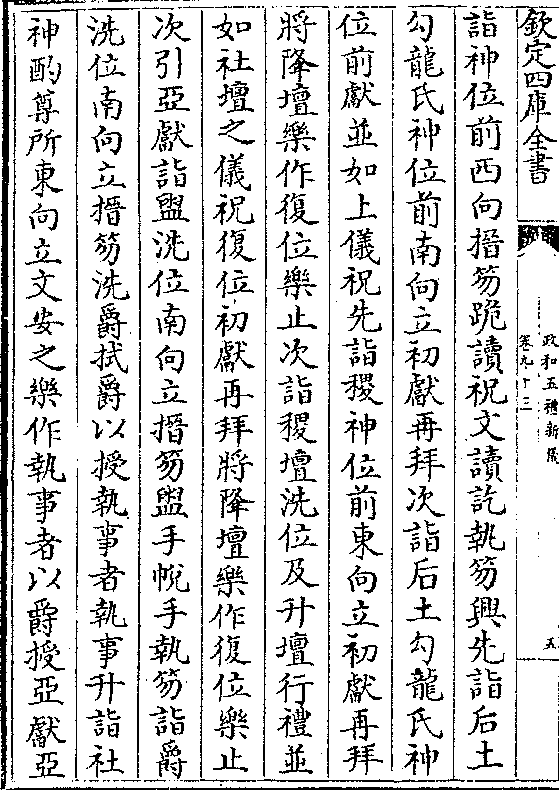 欽定四庫全書
政和五禮新儀
卷九十三
五
詣神位前西向搢笏跪讀祝文讀訖執笏興先詣后土
勾龍氏神位前南向立初獻再拜次詣后土勾龍氏神
位前獻並如上儀祝先詣稷神位前東向立初獻再拜
將降壇樂作復位樂止次詣稷壇洗位及升壇行禮並
如社壇之儀祝復位初獻再拜將降壇樂作復位樂止
次引亞獻詣盥洗位南向立搢笏盥手帨手執笏詣爵
洗位南向立搢笏洗爵拭爵以授執事者執事升詣社
神酌尊所東向立文安之樂作執事者以爵授亞獻亞